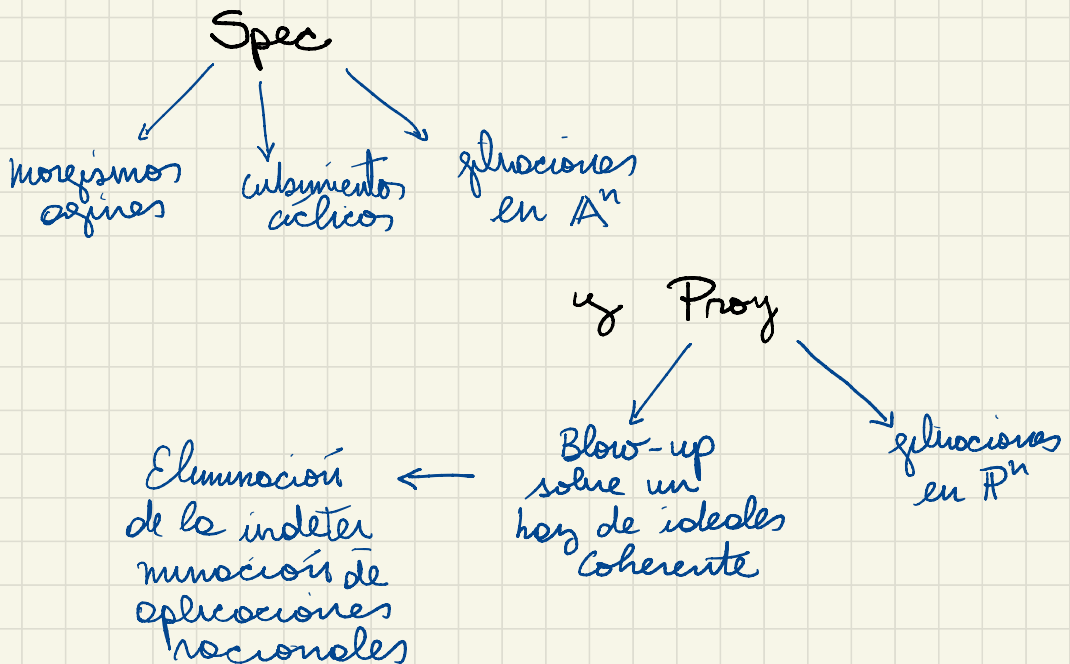 Spec
morfismos
afines
cubrimientos
cíclicos
fibraciones
en 𝔸ⁿ
y Proy
Blow-up
sobre un
haz de ideales
coherente
fibraciones
en ℙⁿ
Eliminación
de la indeter
minación de
aplicaciones
racionales